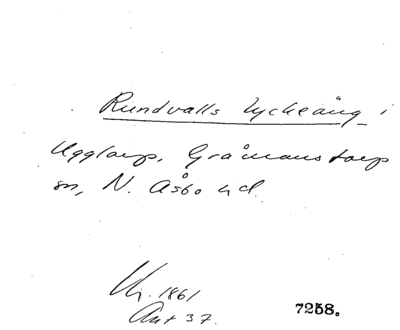 Rundvalls Lyckeäng i
Ugglarp, Gråmanstorps
sn, N. Åsbo hd.
Ur. 1861
Ant 37.
7258.